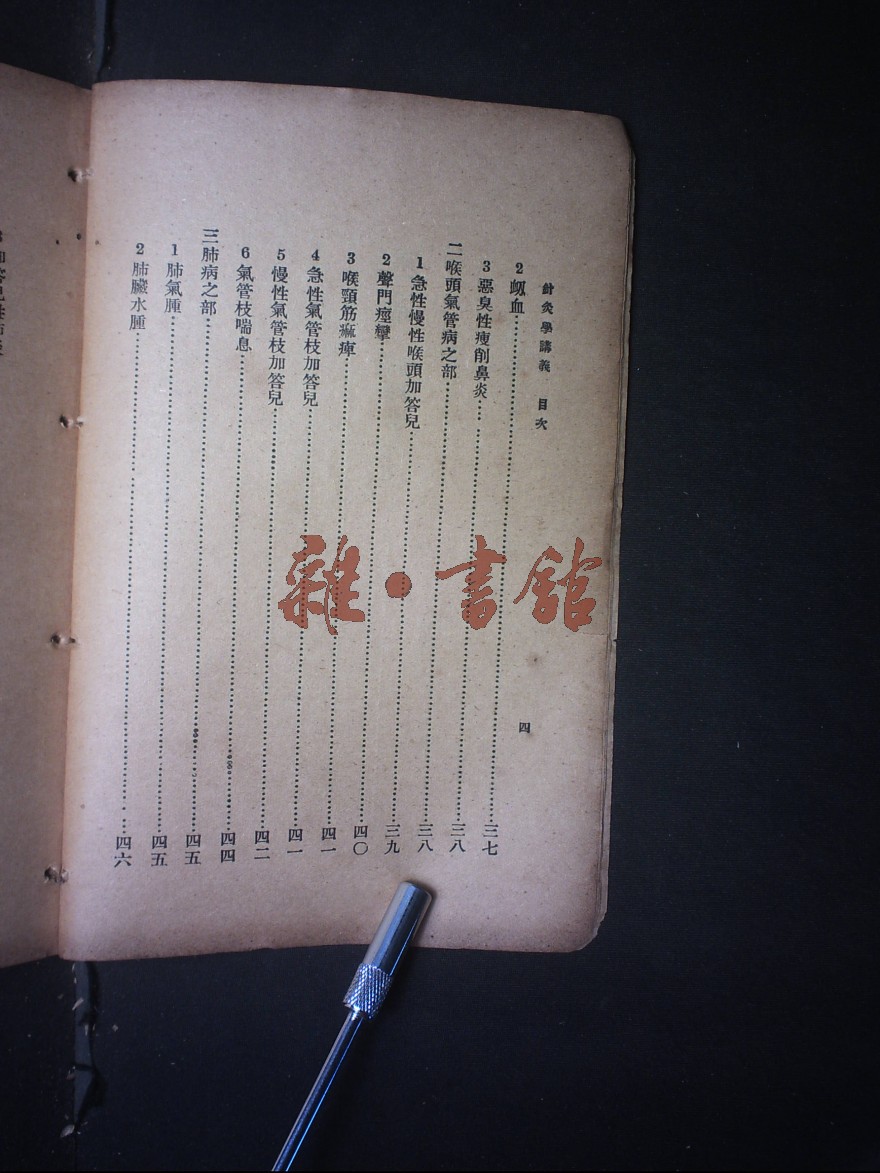 針灸學講義 目次 四
2 衂血 三七
3 惡臭性瘦削鼻炎 三八
二 喉頭氣管病之部 三八
1 急性慢性喉頭加答兒 三九
2 聲門痙攣 四〇
3 喉頸筋痲痺 四一
4 急性氣管枝加答兒 四一
5 慢性氣管枝加答兒 四二
6 氣管枝喘息 四四
三 肺病之部 四五
1 肺氣腫 四五
2 肺臟水腫 四六
雜·書館